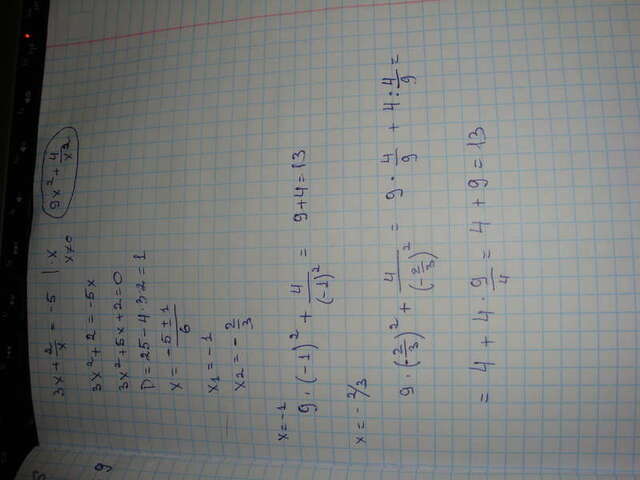 9
3x + 2/x = -5 | · x   9x² + 4/x²
x≠0
3x² + 2 = -5x
3x² + 5x + 2 = 0
D = 25 - 4·3·2 = 1
x = -5 ± 1 / 6
x₁ = -1
x₂ = -2/3
x = -1
9 · (-1)² + 4/(-1)² = 9 + 4 = 13
x = -2/3
9 · (-2/3)² + 4/(-2/3)² = 9 · 4/9 + 4 : 4/9 =
= 4 + 4 · 9/4 = 4 + 9 = 13